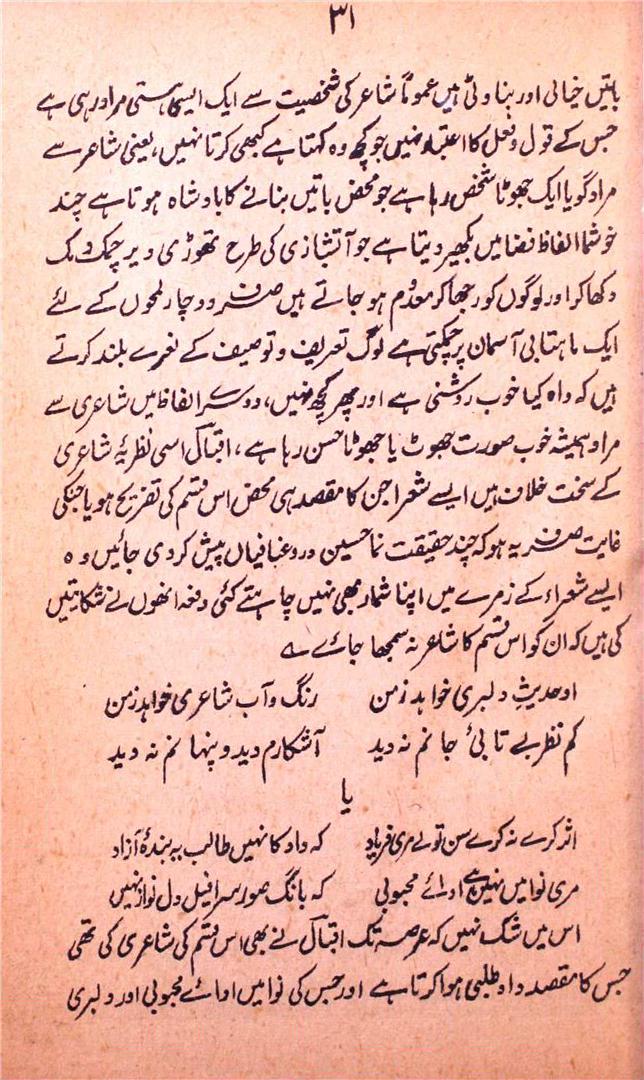 ۳۱
باتیں خیالی اور بناوٹی ہیں عموماً شاعر کی شخصیت سے ایک ایسی ہستی مراد رہی ہے
جس کے قول و فعل کا اعتبار نہیں جو کچھ وہ کہتا ہے کبھی کرتا نہیں، یعنی شاعر سے
مراد گویا ایک جھوٹا شخص رہا ہے جو محض باتیں بنانے کا بادشاہ ہوتا ہے چند
خوشنما الفاظ فضا میں بکھیر دیتا ہے جو آتشبازی کی طرح تھوڑی دیر چمک دمک
دکھا کر اور لوگوں کو رجھا کر معدوم ہو جاتے ہیں صرف دو چار لمحوں کے لئے
ایک ماہتابی آسمان پر چمکتی ہے لوگ تعریف و توصیف کے نعرے بلند کرتے
ہیں کہ واہ کیا خوب روشنی ہے اور پھر کچھ نہیں، دوسرے الفاظ میں شاعری سے
مراد ہمیشہ خوب صورت جھوٹ یا جھوٹا حسن رہا ہے، اقبالؔ اسی نظریۂ شاعری
کے سخت خلاف ہیں ایسے شعرا جن کا مقصد ہی محض اس قسم کی تفریح ہو یا جنکی
غایت صرف یہ ہو کہ چند حقیقت نما حسین دروغبافیاں پیش کر دی جائیں وہ
ایسے شعراء کے زمرے میں اپنا شمار بھی نہیں چاہتے کئی دفعہ انھوں نے شکایتیں
کی ہیں کہ ان کو اس قسم کا شاعر نہ سمجھا جائے ؎
او حدیثِ دلبری خواہد زمن رنگ و آب شاعری خواہد زمن
کم نظر بے تابیٔ جانم نہ دید آشکارم دید و پنہانم نہ دید
یا
اثر کرے نہ کرے سن تو لے مری فریاد کہ داد کا نہیں طالب یہ بندۂ آزاد
مری نوا میں نہیں ہے ادائے محبوبی کہ بانگ صور سرافیل دل نواز نہیں
اس میں شک نہیں کہ عرصہ تک اقبالؔ نے بھی اس قسم کی شاعری کی تھی
جس کا مقصد داد طلبی ہوا کرتا ہے اور جس کی نوا میں ادائے محبوبی اور دلبری